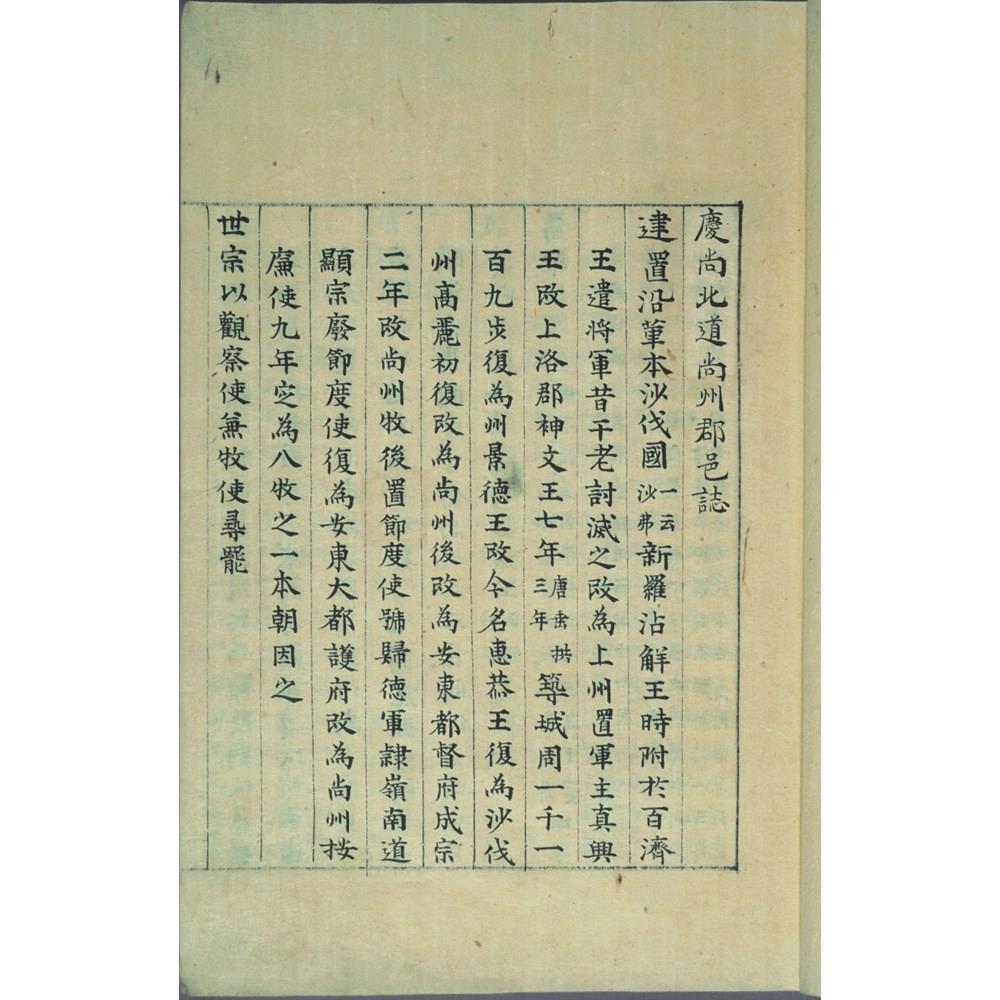 慶尚北道尚州郡邑誌
建置沿革本沙伐國一云沙弗新羅沾解王時附於百濟
王遣將軍昔于老討滅之改為上州置軍主真興
王改上洛郡神文王七年唐垂拱三年築城周一千一
百九步復為州景德王改今名惠恭王復為沙伐
州高麗初復改為尚州後改為安東都督府成宗
二年改尚州牧後置節度使號歸德軍隷嶺南道
顯宗廢節度使復為安東大都護府改為尚州按
廉使九年定為八牧之一本朝因之
世宗以觀察使兼牧使尋罷